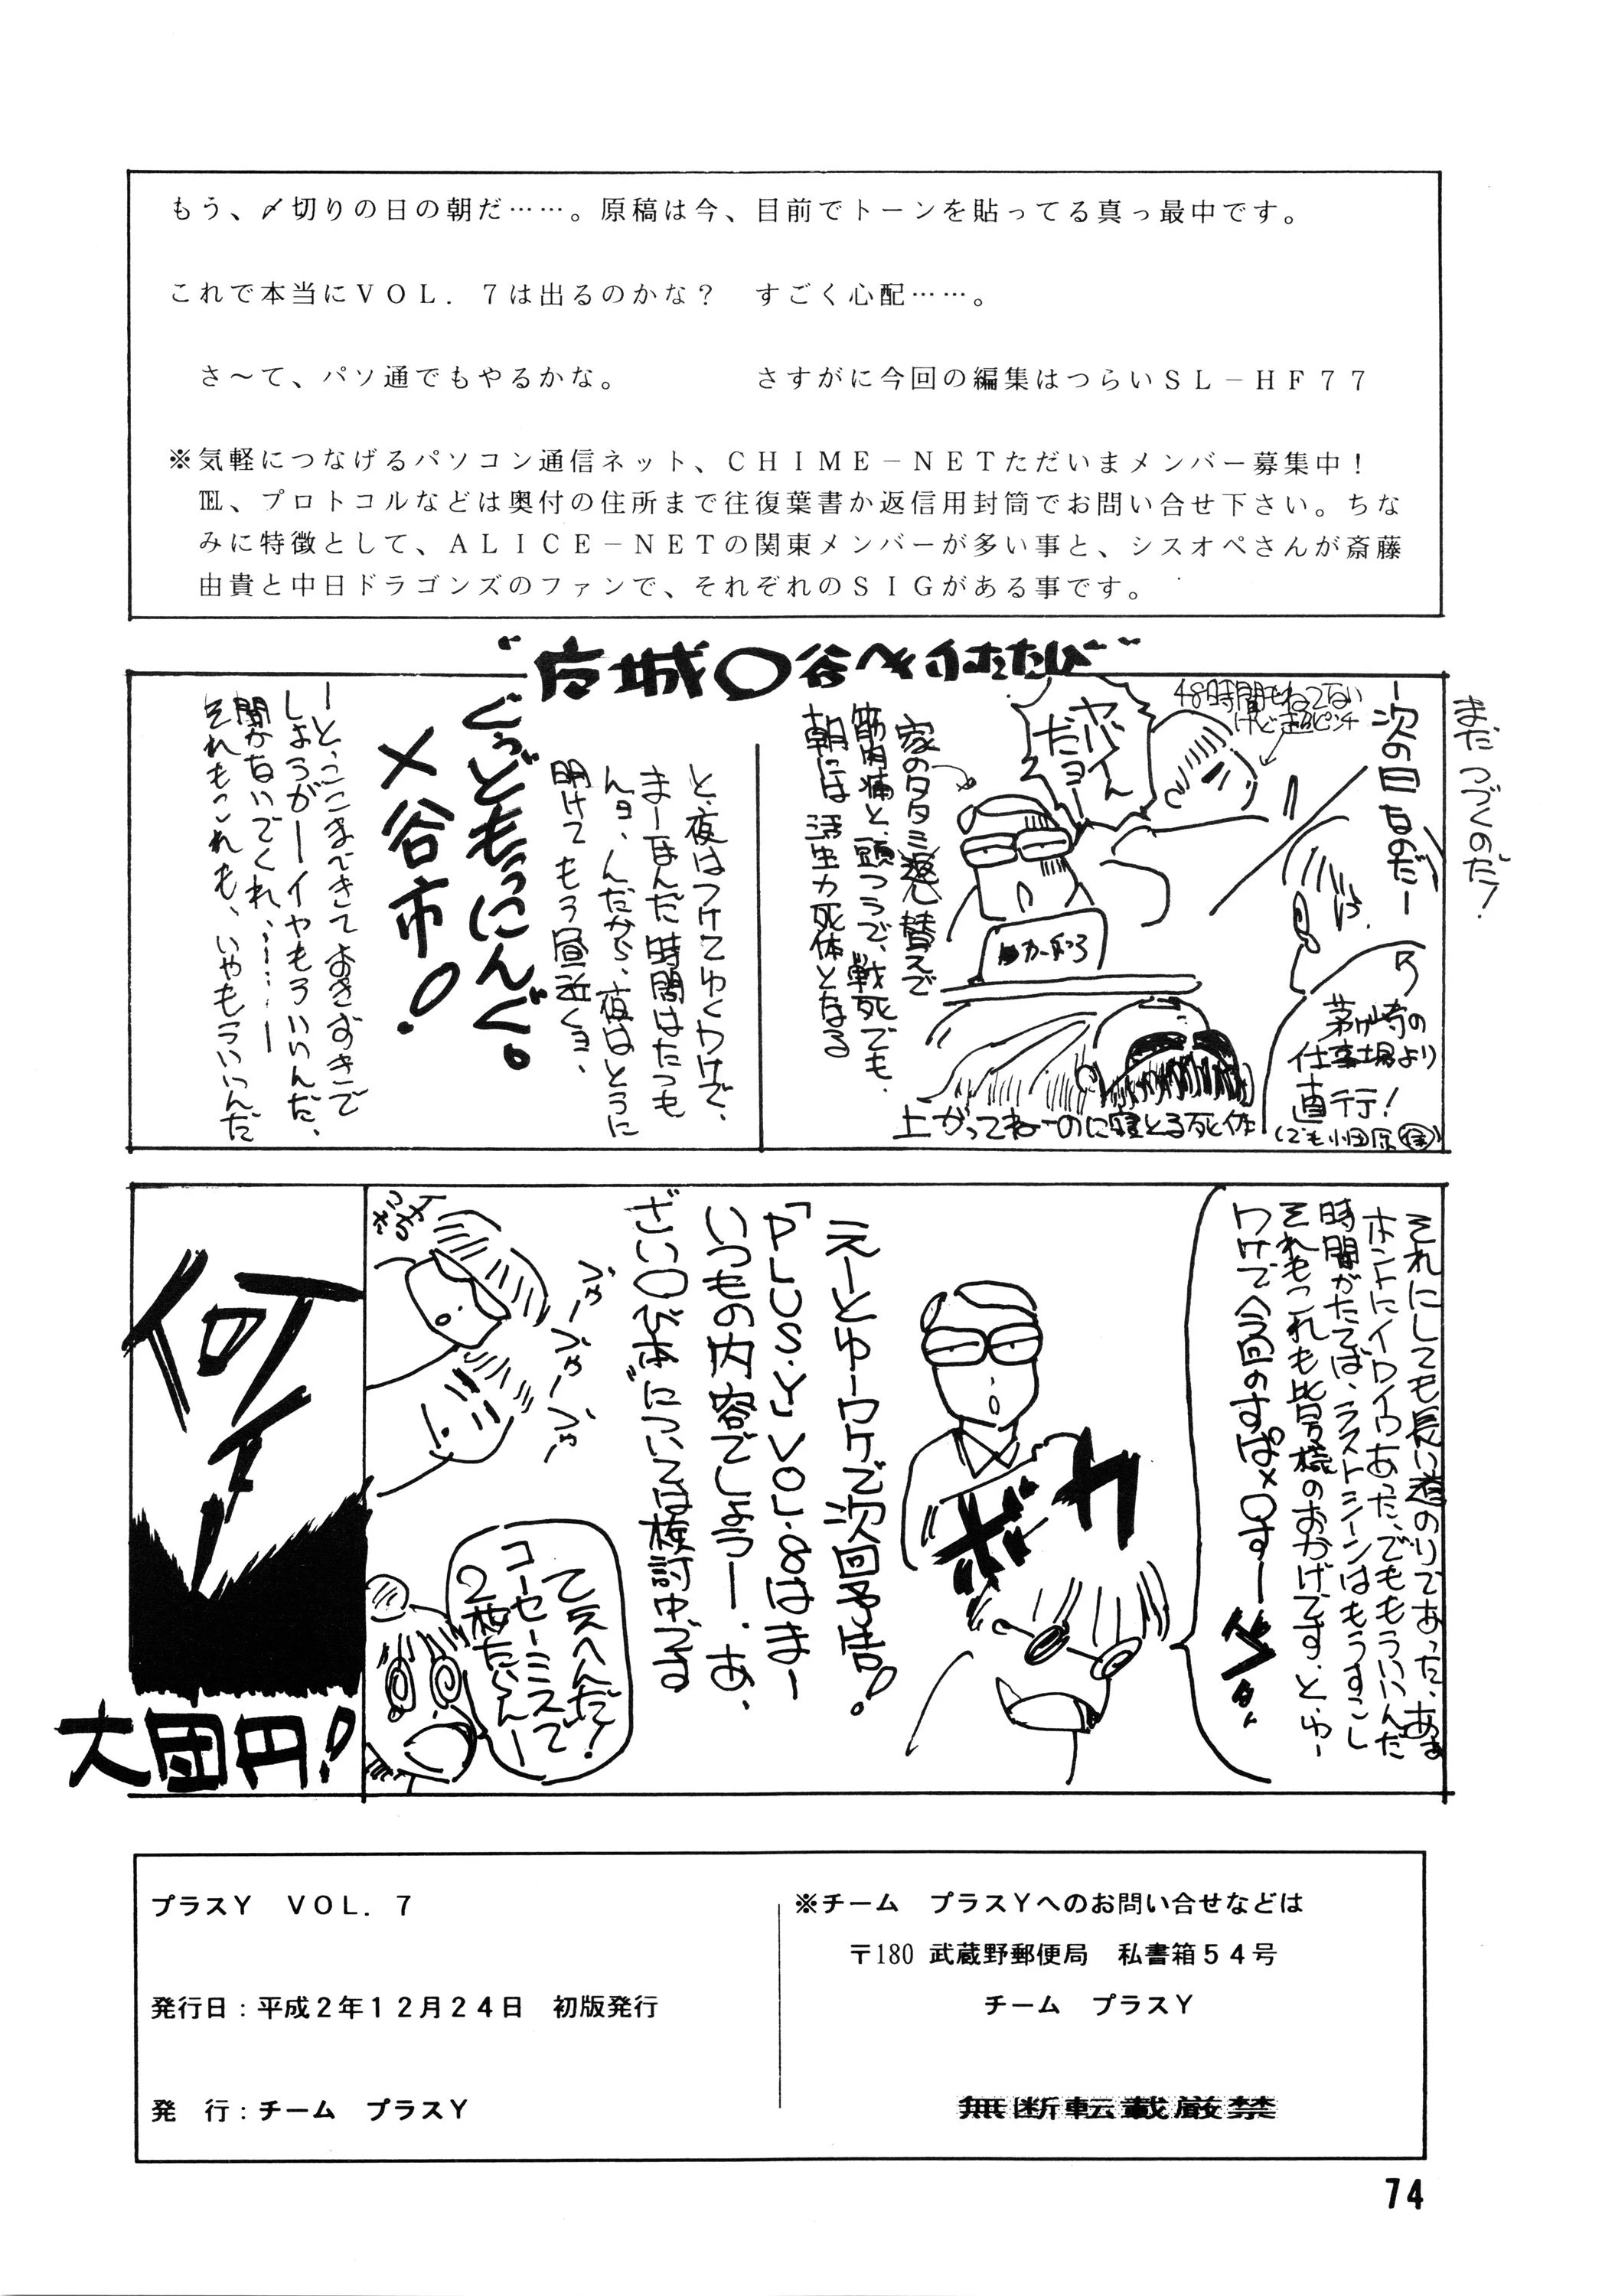 もう、〆切りの日の朝だ……。原稿は今、目前でトーンを貼ってる真っ最中です。
これで本当にＶＯＬ．７は出るのかな？　すごく心配……。
さ～て、パソ通でもやるかな。　さすがに今回の編集はつらいＳＬ－ＨＦ７７
※気軽につなげるパソコン通信ネット、ＣＨＩＭＥ－ＮＥＴただいまメンバー募集中！
℡、プロトコルなどは奥付の住所まで往復葉書か返信用封筒でお問い合せ下さい。ちな
みに特徴として、ＡＬＩＣＥ－ＮＥＴの関東メンバーが多い事と、シスオペさんが斎藤
由貴と中日ドラゴンズのファンで、それぞれのＳＩＧがある事です。
まだつづくのだ！
ー次の日なのだー
48時間もねてない
けど超ピンチ
茅ヶ崎の
仕事場より
直行！
ヤバイん
だヨー
家のタタミ替えで
筋肉痛と、頭つうで、戦死でも、
朝には活生力死体となる
上がってねーのに寝とる死体
と、夜はつけてゆくわけで、
まーほんだ時間はたつも
んヨ、んだから、夜はとうに
明けてもう昼近くヨ、
ぐっどもうにんぐ。
×谷市！
ーと、ここまできておきずきで
しょうがーイヤもういいんだ、
聞かないでくれ、……ー
それもこれも、いやもういいんだ
それにしても長い道のりであった、ああ
ホントにイロイロあった、でももういいんだ
時間がたてば、ラストシーンはもうすこし
それもこれも皆様のおかげです、と、ゆー
ワけで今回のすぱ×〇すー
ボカ
えーとゆーワケで次回予告！
「PLUS・Y」VOL.8はまー
いつもの内容でしょうー、あ、
ざい〇び本"については検討中でる
つゃーつゃーつゃー
てえへんだ！
コーセーミスで
2枚たらんー
何ィーッ
大団円！
プラスＹ　ＶＯＬ．７
発行日：平成２年１２月２４日　初版発行
発　行：チーム　プラスＹ
※チーム　プラスＹへのお問い合せなどは
〒180 武蔵野郵便局　私書箱５４号
チーム　プラスＹ
無断転載厳禁
74